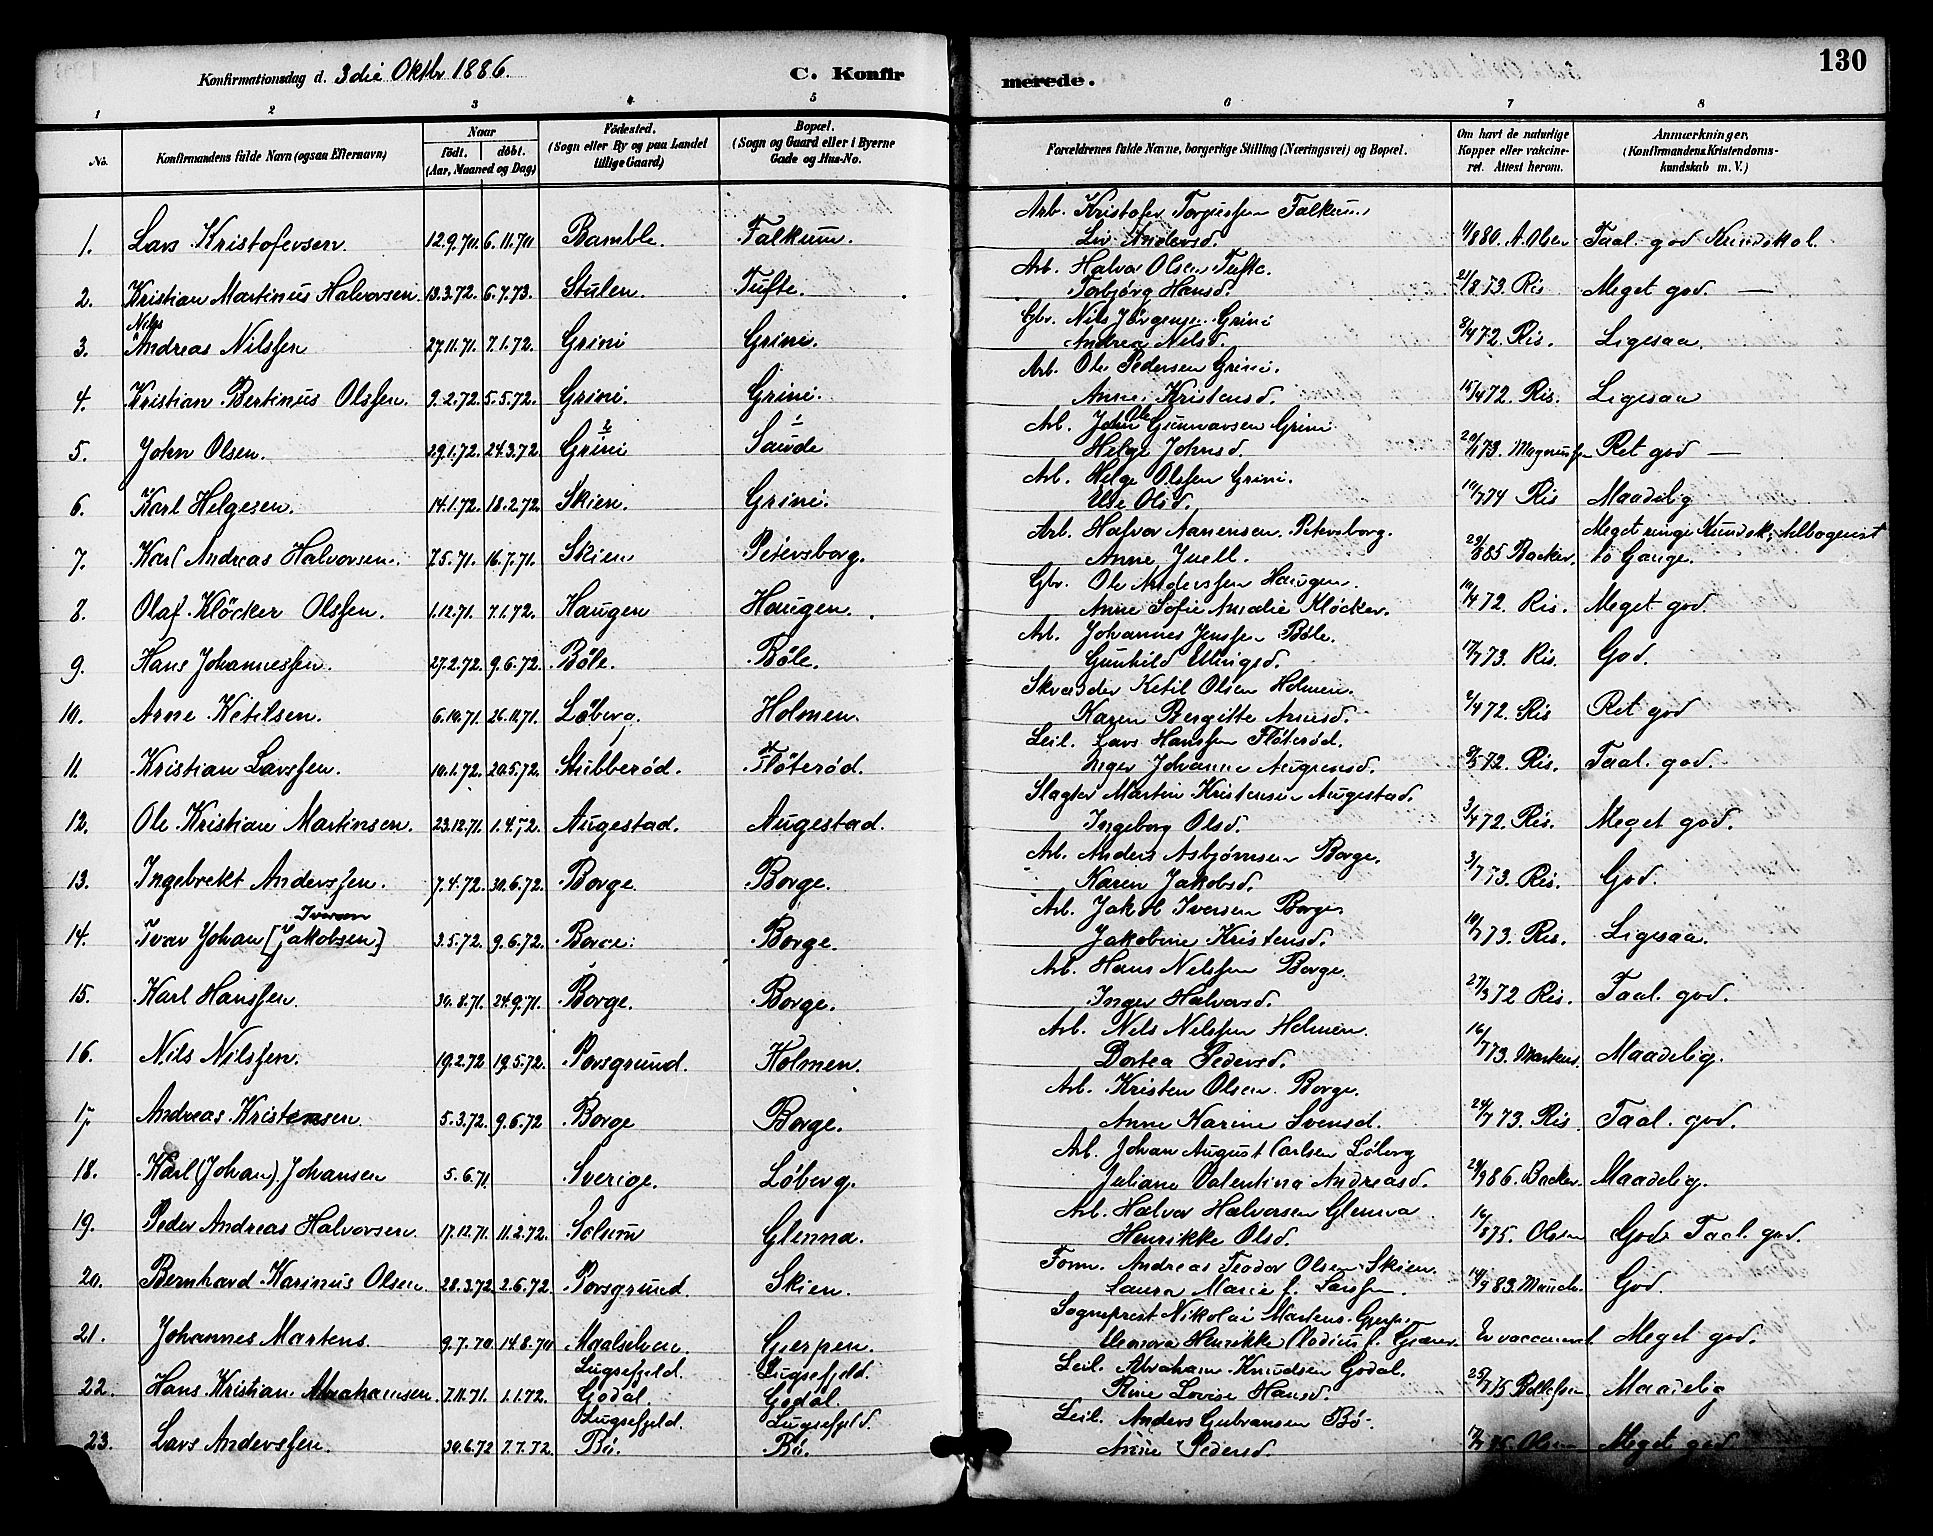 Konfirmationsdag d. 3die Oktbr 1886. C. Konfirmerede. 130
1 2 3 4 5 6 7 8
No. Konfirmandens fulde Navn (ogsaa Efternavn) Naar født. døbt. (Aar, Maaned og Dag) Fødested. (Sogn eller By og paa Landet tillige Gaard) Bopæl. (Sogn og Gaard eller i Byerne Gade og Hus-No. Forældrenes fulde Navne, borgerlige Stilling (Næringsvei) og Bopæl. Om havt de naturlige Kopper eller vakcineret. Attest herom. Anmærkninger, (Konfirmandens Kristendomskundskab m. V.)
1. Lars Kristofersen 12.9.70 6.11.70 Bamble. Falkum. Arb. Kristofer Torgussen Falkum, Liv Andersd. 11/8 80. A. Olsen Taal. god Kundskab.
2. Kristian Martinus Halvorsen 13.3.72. 6.7.73. Stulen. Tufte. Arb. Halvor Olsen Tufte. Torbjörg Hansd. 21/8 73. Ris Meget god. —
3. Nils Andreas Nilssen 27.11.71. 7.1.72. Grini Grini. Gbr. Nils Jörgensen Grini Andrea Nilsd. 8/4 72. Ris. Ligesaa
4. Kristian Bertinus Olssen. 9.2.72. 5.5.72. Grini. Grini. Arb. Ole Pedersen Grini. Anne Kristensd. 15/4 72. Ris. Ligesaa
5. John Olsen. 29.1.72. 24.3.72 Grini Saude Arb. John Ole Gunnarsen Grini Helge Johnsd. 20/1 73. Magnussen Ret god —
6. Karl Helgesen. 14.1.72. 18.2.72 Skien. Grini. Arb. Helge Olssen Grini. Else Olsd. 10/7 74 Ris Maadelig
7. Karl Andreas Halvorsen. 7.5.71. 16.7.71. Skien Petersborg. Arb. Halvor Nanensen Petersborg. Anne Juell. 29/8 85 Backer. Meget ringe Kundsk. Altbogenist to Gange.
8. Olaf Klöcker Olssen. 1.12.71. 7.1.72. Haugen Haugen. Gbr. Ole Anderssen Haugen. Anne Sofie Amalie Klöcker. 10/4 72. Ris. Meget god.
9. Hans Johannessen. 27.2.72. 9.6.72. Böle. Böle. Arb. Johannes Jenssen Böle. Gunhild Ellingsd. 17/7 73. Ris. God.
10. Arne Ketilsen. 6.10.71. 26.11.71. Löberg. Holmen. Skræder Ketil Olsen Holmen. Karen Bergitte Arnesd. 2/4 72. Ris Ret god
11. Kristian Larssen. 10.1.72. 20.5.72. Stubberöd. Flöteröd. Leil. Lars Hanssen Flöteröd. Inger Johanne Augrensd. 8/5 72. Ris. Taal. god.
12. Ole Kristian Martinsen. 23.12.71. 1.4.72. Augestad. Augestad. Slagter Martin Kristensen Augestad. Ingeborg Olsd. 3/4 72. Ris. Meget god.
13. Ingebrekt Anderssen. 7.4.72. 30.6.72. Borge. Borge. Arb. Anders Asbjörnsen Borge. Karen Jakobsd. 3/7 73. Ris. God.
14. Ivar Johan [Jakobsen] Iversen 3.5.72. 9.6.72. Borge. Borge. Arb. Jakob Iversen Borge Jakobine Kristensd. 10/7 73. Ris. Ligesaa.
15. Karl Hanssen. 30.8.71. 24.9.71. Borge. Borge. Arb. Hans Nilssen Borge. Inger Halvorsd. 27/3 72 Ris. Taal. god.
16. Nils Nilssen. 19.2.72 19.5.72. Porsgrund. Holmen. Arb. Nils Nilssen Holmen. Dortea Pedersd. 16/7 73. Markus. Maadelig.
17. Andreas Kristensen 5.3.72. 9.6.72 Borge Borge. Arb. Kristen Olsen Borge. Anne Karine Svensd. 24/7 73. Ris. Taal. god.
18. Karl (Johan) Johansen 5.6.71. Sverige. Löberg. Arb. Johan August Carlsen Löberg Juliane Valentina Andreasd. 29/9 86. Backer. Maadelig.
19. Peder Andreas Halvorsen. 17.12.71. 11.2.72. Solum Glenna. Arb. Halvor Halvorsen Glenna Henrikke Olsd. 16/8 75. Olsen God. Taal. god.
20. Bernhard Karinus Olsen 28.3.72 2.6.72. Porsgrund. Skien. Form. Andreas Teodor Olsen Skien. Laura Marie f. Larssen. 14/9 83. Münch. God.
21. Johannes Martens 9.7.70. 14.8.70 Maalselven. Gjerpen. Sogneprest Nikolai Martens Gjerpen Eleonora Henrikke Clodius f. Gjæver. Er vaccineret Meget god.
22. Hans Kristian Abrahamsen 7.11.71. 1.1.72. Lugsefjeld. Godal. Lugsefjeld. Godal. Leil. Abraham Knudsen Godal. Rine Lovise Hansd. 25/7 75 Rollefsen Maadelig
23. Lars Anderssen. 30.6.72 7.7.72. Lugsefjeld. Bö. Lugsefjeld. Bö. Leil. Anders Gulvansen Bö. Anne Pedersd. Olsen Meget god